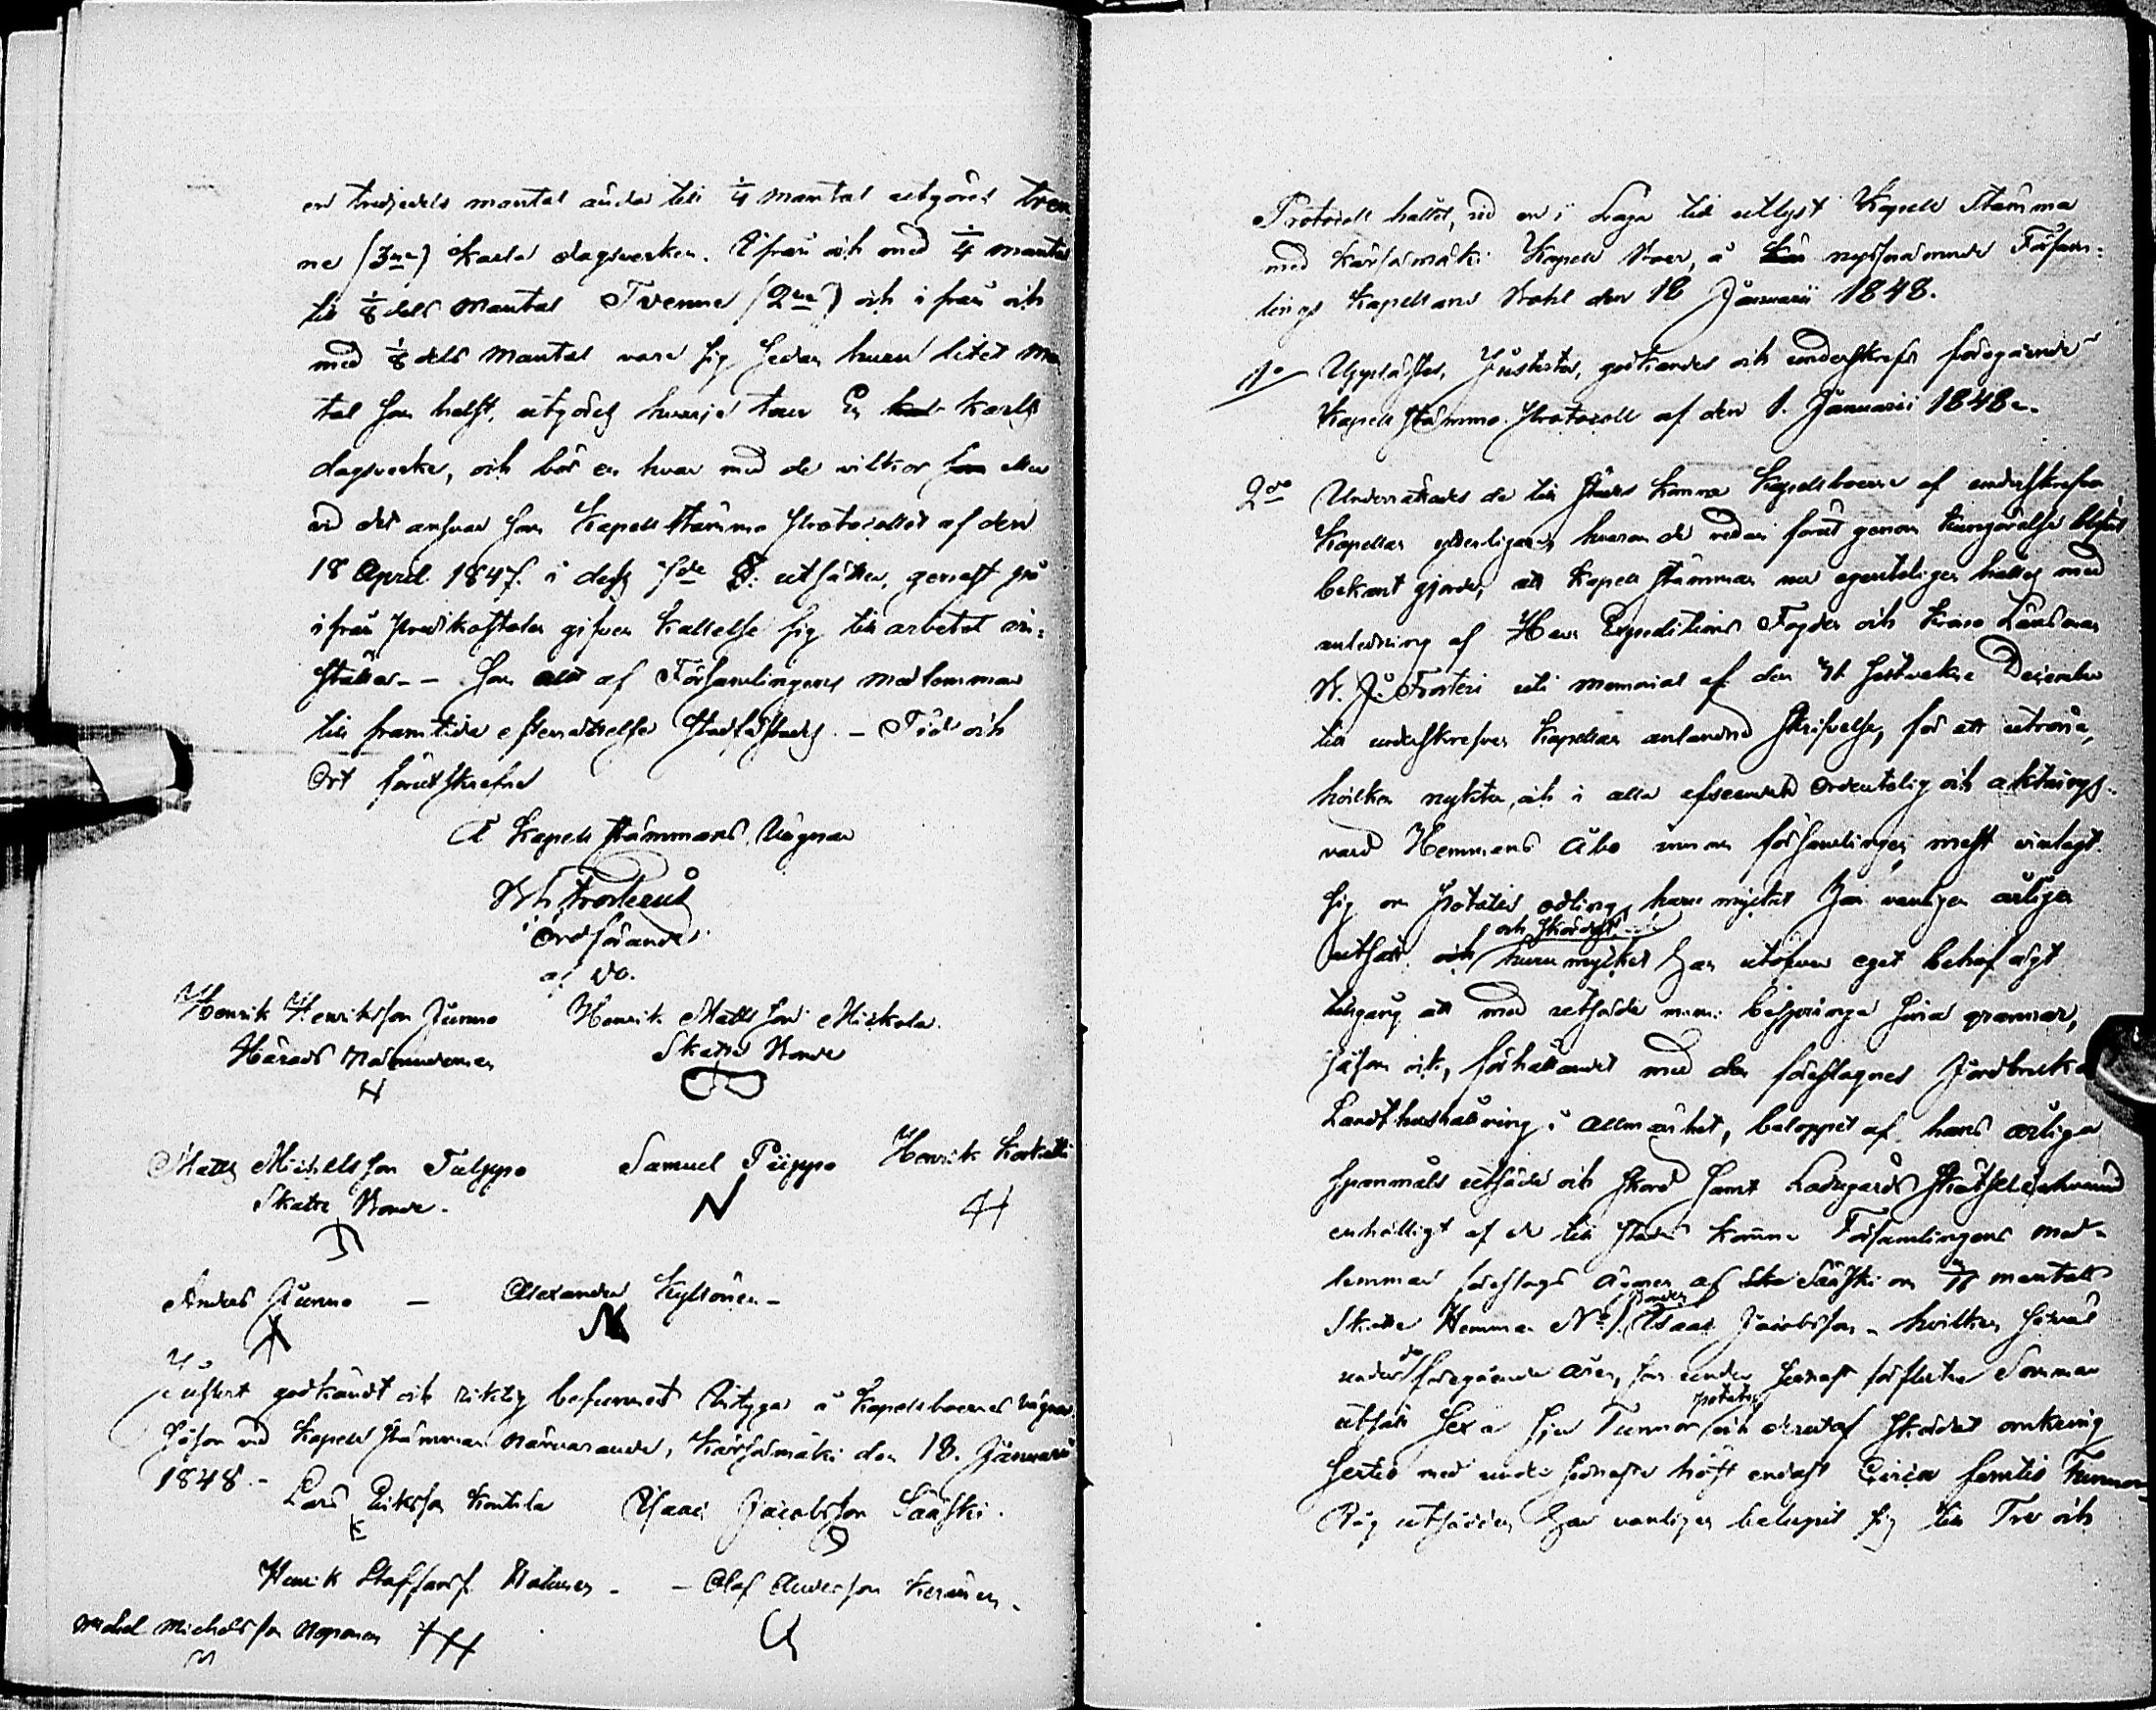 en tredjedels mantal ända till 1/4 mantal utgöres tven
ne (3ne) karls dagsverken. Ifrån och med 1/4 mantal
till 1/8 dels mantal Tvenne (2ne) och i från och
med 1/8 dels mantal vare sig sedan huru litet man
tal som helst, utgöres hvarje tour En karls
dagsverke, och bör en hvar med de vilkor eller
vid det answar som Kapell stämmo Protocollet af den
18 April 1847. i dess §: utsätter, genast på
ifrån Predikostolen gifven kallelse sig till arbetet in-
ställa -- som allt af Församlingens medlemmar
till framtida efterrättelse stadfästades. - Tid och
Ort förutskrefne
På Kapell stämmans Vägnar
Ordförande
Henrik Henriksson Junno Henrik Mattsson Miskola
Härads Nämndeman Skatte Bonde
Matts Michelsson Tulppo Samuel Piippo Henrik
Skatte Bonde.
Anders Junno - Alexander Kyllönen -
Justerat godkändt och riktig befunnet Betyga å Kapellboernes vägnar
såsom vid Kapell stämman närvarande, Kärsämäki den 18. Januarii
1848. -
Lars Eriksson Kontila Isaac Jacobsson Sääski.
Henrik Staffanss. - - Olof Andersson Keränen -
Michel Michelsson Noponen
Protocoll hållet, vid en i Laga tid utlyst Kapell Stämma
med Kärsämäki Kapell Boer, å nyssnämnde Försam-
lings Kapellans Bohl den 18 Januarii 1848.
1o Upplästes, Justertes, godkändes och underskrefs föregående
Kapell stämmo Protocoll af den 1. Januarii 1848.
2do Underrättades de till städes komne Kapellboerne af underskrefven
Kapellan ytterligare, hvarom de redan förut genom kungörelse blifvit
bekant gjorde, att Kapell stämman nu egenteligen hålles med
anledning af Herr Expeditions Fogden och Krono Länsman
uti Memorial af den sistvekne December
till underskrefven Kapellan anländ skrifvelse, för att utröna,
hvilken nykter, och i alla afseenden Ordentelig och aktnings-
värd Hemmans Åbo inom församlingen mest vinlagt
sig om Potates odling, huru mycket han vanligen årligen
utsått och skördat huru mycket han utöfver eget behof ägt
tillgång att med utsäde m.m. bespringa sina grannar,
såsom ock, förhållandet med den föreslagnes Jordbruk
Landthushållning i Allmänhet, beloppet af hans årliga
Spannmåls utsäde och skörd samt Ladugårds skötsel
enhälligt af de till städes komne Församlingens med-
lemmar föreslogs Ägaren af Sääski om mantals
Skatte Hemman No 1. Bonden Isaac Jacobsson - hvilken såväl
under de föregående åren, som under sednast förflutne Sommar
utsått Sex a Sju Tunnor potates och derutaf skördat omkring
Sextio med under sednaste höst endast Circa femtio Tunnor.
Råg utsäden har vanligen belupit sig till Tre och